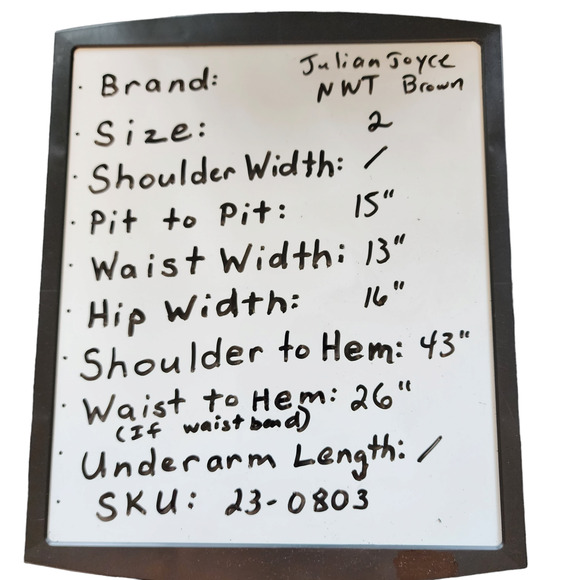 · Brand: Julian Joyce
NWT Brown
· Size: 2
· Shoulder Width: /
· Pit to Pit: 15"
· Waist Width: 13"
· Hip Width: 16"
· Shoulder to Hem: 43"
· Waist to Hem: 26"
(If waist band)
· Underarm Length: /
· SKU: 23-0803